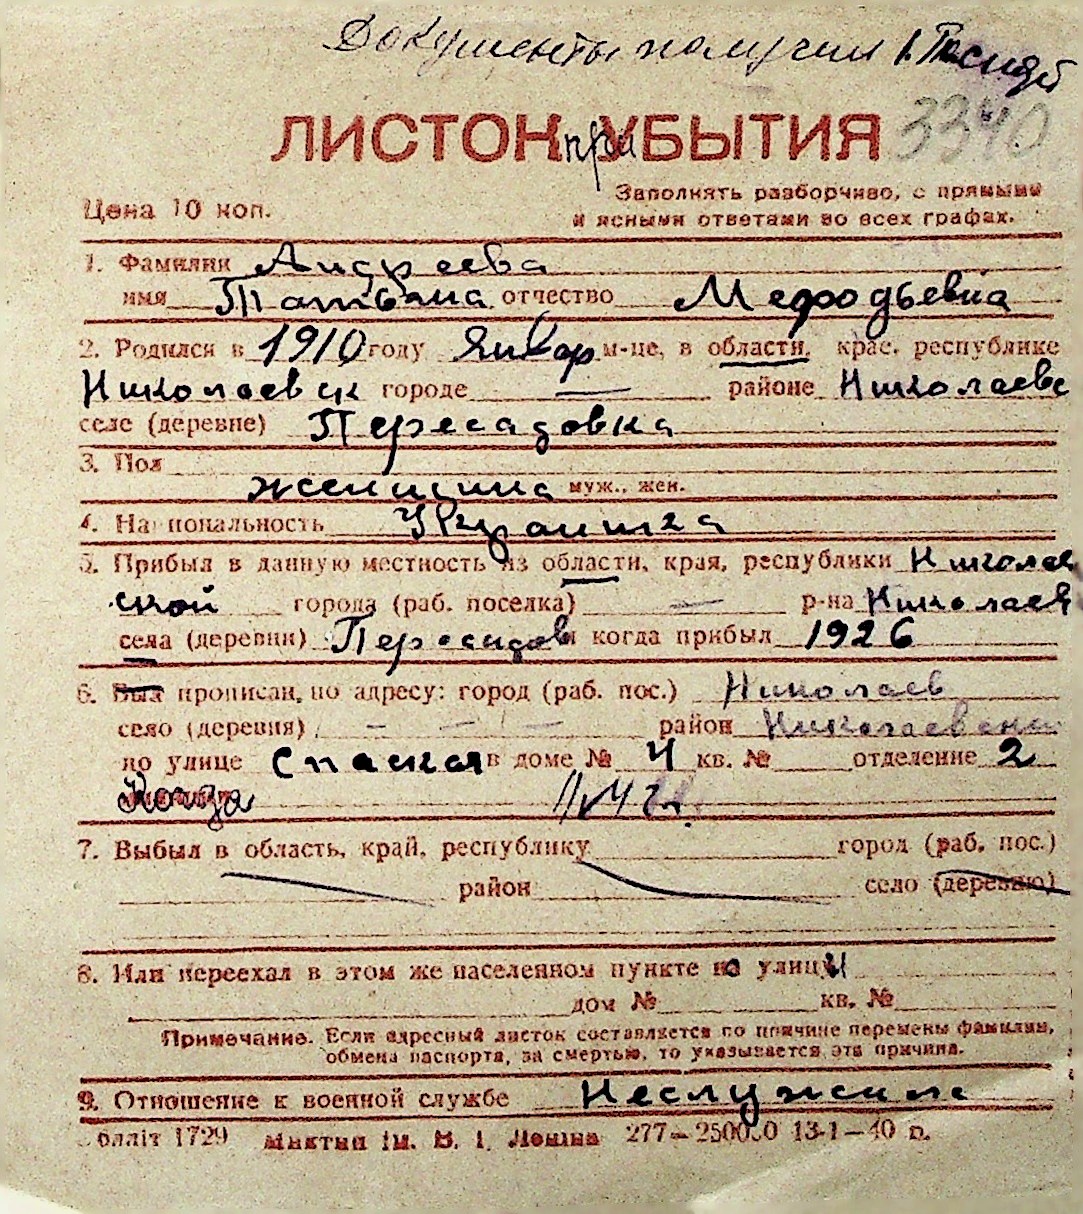 Документы получил
ЛИСТОК при УБЫТИЯ 3340
Цена 10 коп.
Заполнять разборчиво, с прямыми
и ясными ответами во всех графах.
1. Фамилия Андреева
имя Татьяна отчество Мефодьевна
2. Родился в 1910 году Январ м-це, в области, крае, республике
Николаевск городе — районе Николаевс
селе (деревне) Пересадовка
3. Пол
женщина муж., жен.
4. Национальность Украинка
5. Прибыл в данную местность из области, края, республики Николаев
ской города (раб. поселка) — р-на Николаев
села (деревни) Пересадовк когда прибыл 1926
6. Был прописан, по адресу: город (раб. пос.) Николаев
село (деревня) — — — район Николаевский
по улице Спаская в доме № 4 кв. № отделение 2
Когда
7. Выбыл в область, край, республику город (раб. пос.)
район село (деревню)
8. Или переехал в этом же населенном пункте на улицу
дом № кв. №
Примечание. Если адресный листок составляется по причине перемены фамилии,
обмена паспорта, за смертью, то указывается эта причина.
9. Отношение к военной службе Неслужила
облліт 1729 Миктип ім. В. І. Леніна 277—250000 13-1—40 р.